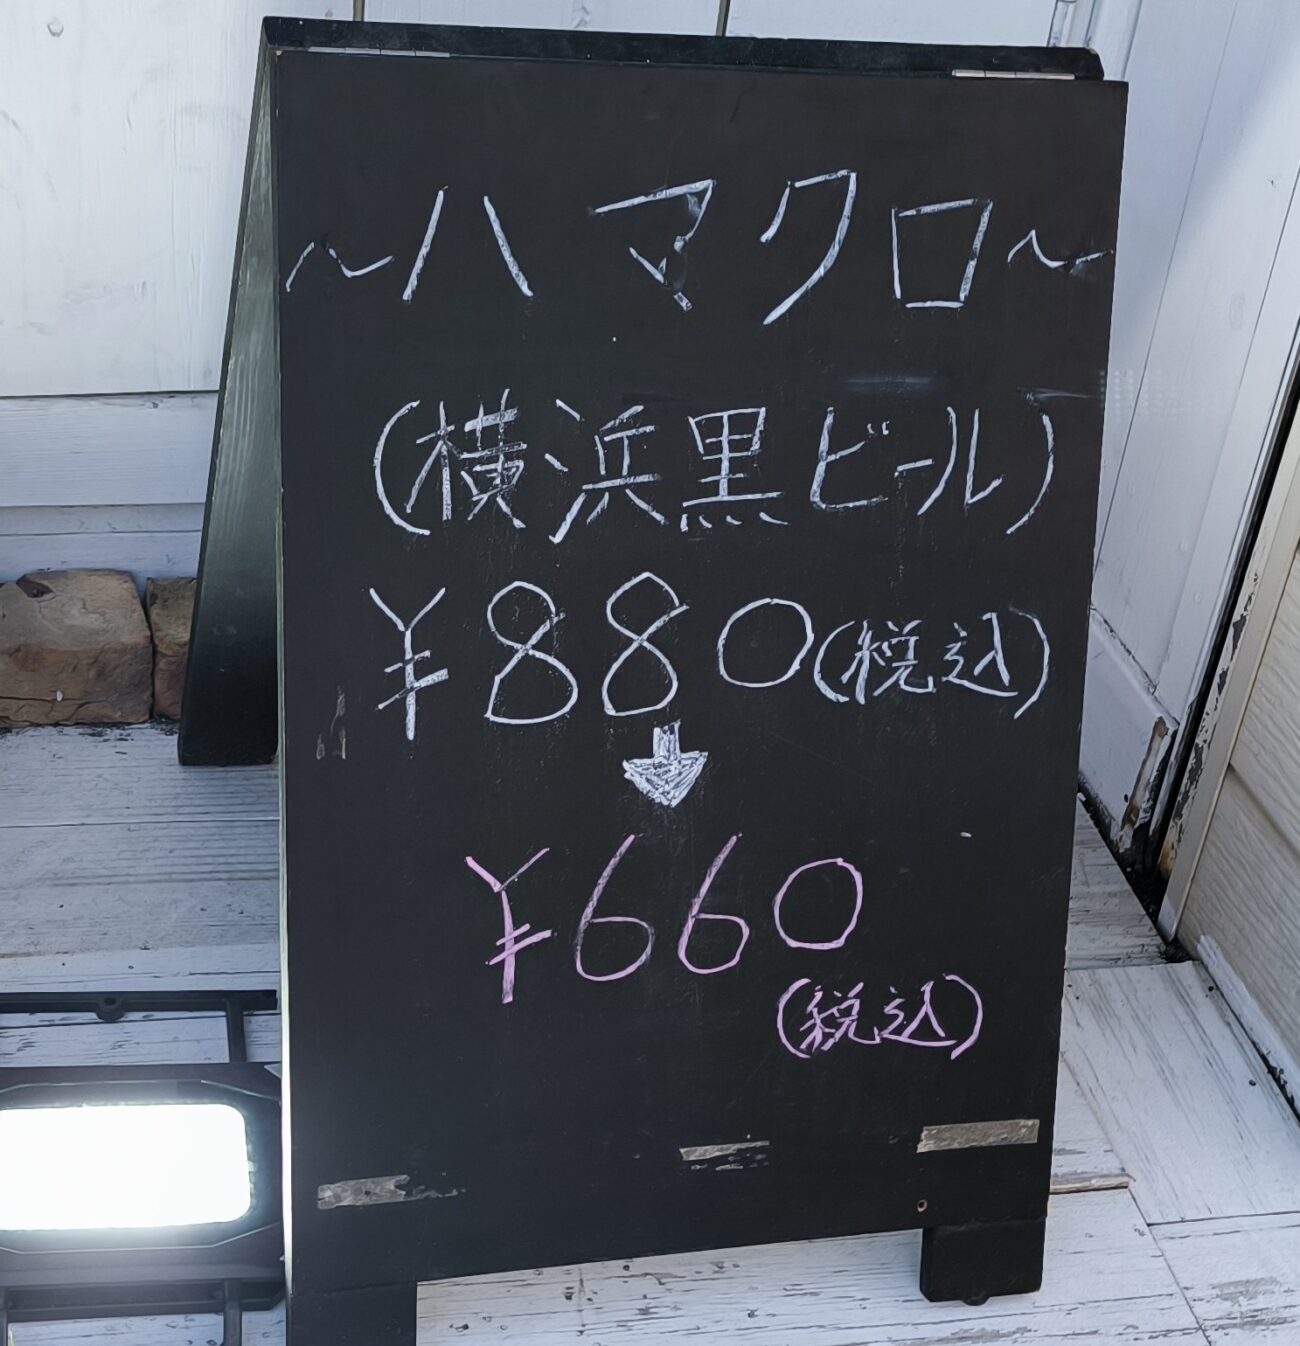 ～ハマクロ～
(横浜黒ビール)
¥880(税込)
¥660
(税込)